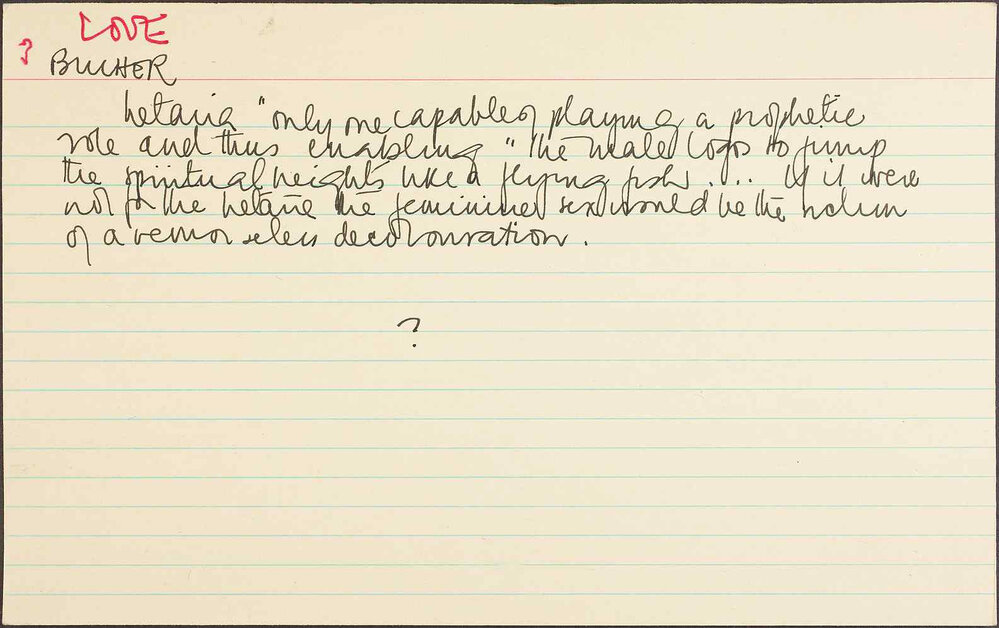 LOVE
?
BUCHER
hetaria "only one capable of playing a prophetic
role and thus enabling "the male logos to jump
the spiritual heights like a flying fish .... If it were
not for the hetarie the feminine sex would be the victim
of a remorseless decolouration.
?